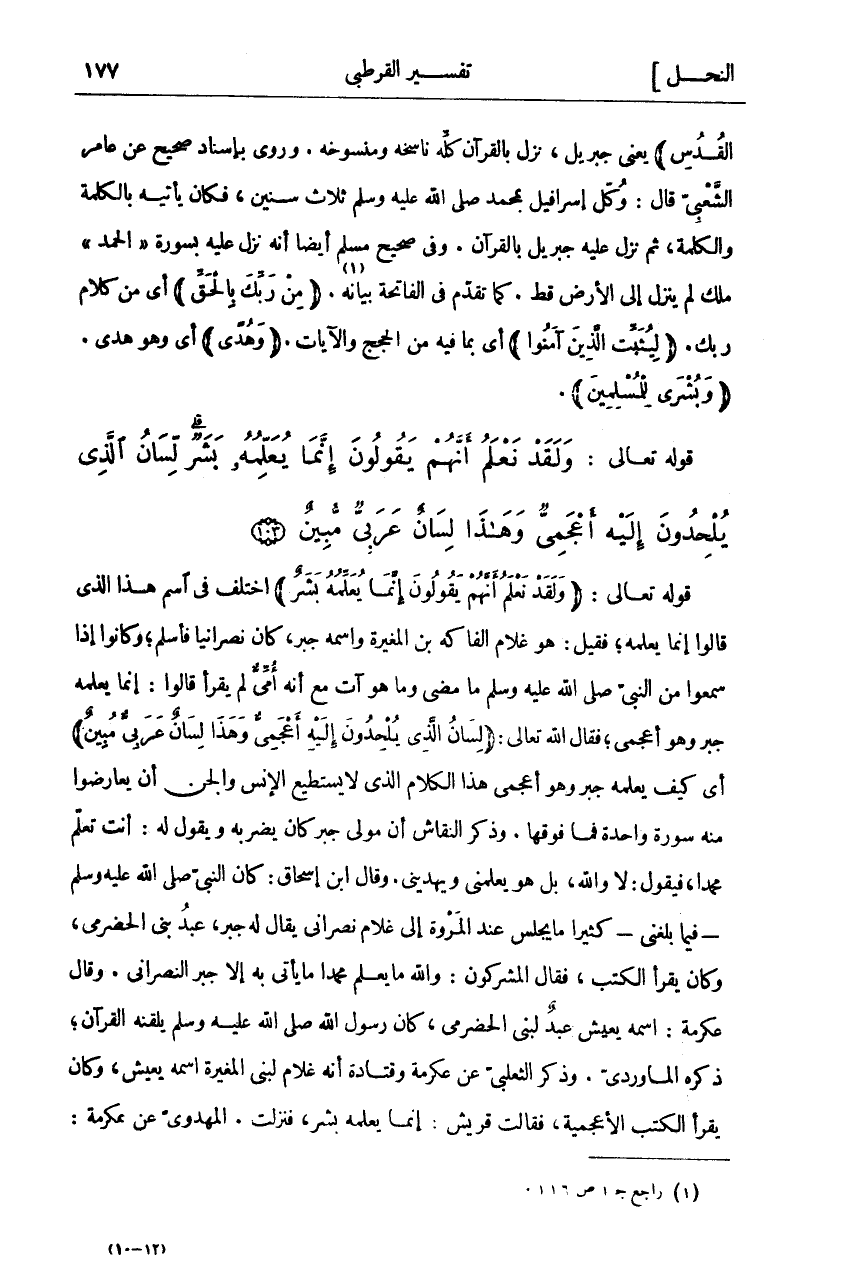 النحـــل ] تفســـير القرطبى ١٧٧
القُــدُسِ ) يعنى جبريل ، نزل بالقرآن كلّه ناسخه ومنسوخه . وروى بإسناد صحيح عن عامر
الشَّعْبىّ قال : وُكّل إسرافيل بمحمد صلى الله عليه وسلم ثلاث سـنين ، فـكان يأتيـه بالكلمة
والكلمة، ثم نزل عليه جبريل بالقرآن . وفى صحيح مسلم أيضا أنه نزل عليه بسورة « الحمد »
ملك لم ينزل إلى الأرض قط . كما تقدّم فى الفاتحة بيانه (١) . ( مِنْ رَبِّكَ بِالْحَقِّ ) أى من كلام
ربك. ( لِيُثَبِّت الَّذِينَ آمَنُوا ) أى بما فيه من الحجج والآيات . ( وَهُدًى ) أى وهو هدى .
( وَبُشْرَى لِلْمُسْلِمِينَ ) .
قوله تعـالى : وَلَقَدْ نَعْلَمُ أَنَّهُمْ يَقُولُونَ إِنَّمَا يُعَلِّمُهُۥ بَشَرٌ ۗ لِّسَانُ ٱلَّذِى
يُلْحِدُونَ إِلَيْهِ أَعْجَمِىٌّ وَهَـٰذَا لِسَانٌ عَرَبِىٌّ مُّبِينٌ ١٠٣
قوله تعـالى : ( وَلَقَدْ نَعْلَمُ أَنَّهُمْ يَقُولُونَ إِنَّمَـا يُعَلِّمُهُ بَشَرٌ ) اختلف فى ٱسم هـذا الذى
قالوا إنما يعلمه؛ فقيل: هو غلام الفاكه بن المغيرة واسمه جبر، كان نصرانيا فأسلم؛ وكانوا إذا
سمعوا من النبىّ صلى الله عليه وسلم ما مضى وما هو آت مع أنه أُمِّىٌّ لم يقرأ قالوا : إنما يعلمه
جبر وهو أعجمى؛ فقال الله تعالى: ( لِسَانُ الَّذِى يُلْحِدُونَ إِلَيْهِ أَعْجَمِىٌّ وَهَذَا لِسَانٌ عَرَبِىٌّ مُبِينٌ )
أى كيف يعلمه جبر وهو أعجمى هذا الكلام الذى لا يستطيع الإنس والجن أن يعارضوا
منه سورة واحدة فمـا فوقها . وذكر النقاش أن مولى جبر كان يضربه ويقول له : أنت تعلّم
محمدا، فيقول: لا والله، بل هو يعلمنى ويهدينى. وقال ابن إسحاق: كان النبىّ صلى الله عليه وسلم
– فيما بلغنى – كثيرا ما يجلس عند المَرْوة إلى غلام نصرانى يقال له جبر، عبدُ بنى الحضرمى،
وكان يقرأ الكتب ، فقال المشركون : والله ما يعـلم محمدا ما يأتى به إلا جبر النصرانى . وقال
عكرمة : اسمه يعيش عبدٌ لبنى الحضرمى ، كان رسول الله صلى الله عليـه وسلم يلقنه القرآن؛
ذكره المـاوردىّ . وذكر الثعلبىّ عن عكرمة وقتـادة أنه غلام لبنى المغيرة اسمه يعيش، وكان
يقرأ الكتب الأعجمية، فقالت قريش : إنمـا يعلمه بشر، فنزلت . المهدوىّ عن عكرمة :
(١) راجع جـ ١ ص ١١٦ .
(١٠-١٢)